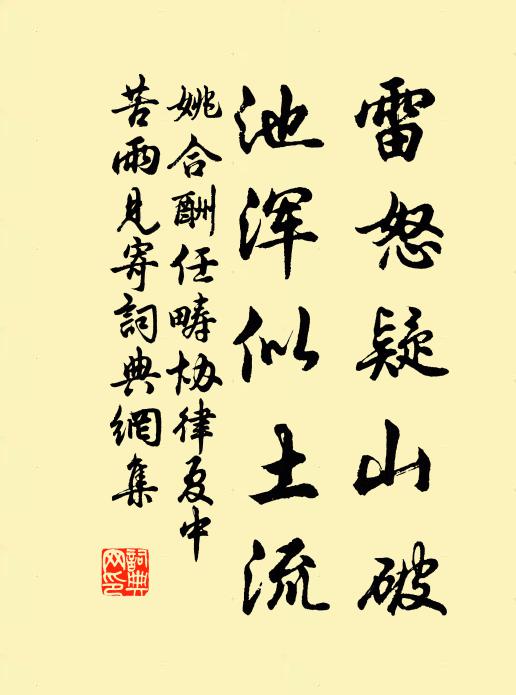 雷怒疑山破
池浑似土流
姚合酬任畴协律夏中
苦雨见寄词典網集
詞典网印